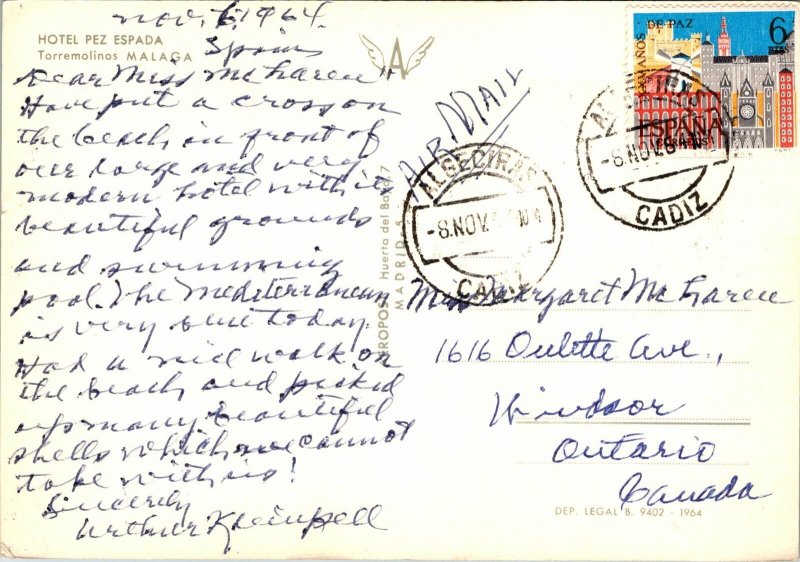 Nov. 6, 1964.
HOTEL PEZ ESPADA
Torremolinos MALAGA
Spain
Dear Miss McLaren
Have put a cross on
the beach in front of
our large and very
modern hotel with its
beautiful grounds
and swimming
pool. The Mediterranean
is very blue today.
Had a nice walk on
the beach and picked
up many beautiful
shells which we cannot
take with us!
Sincerely
Arthur Kleinpell
A
AIR MAIL
Huerta del Bayo, 7
MADRID
ALGECIRAS
-8.NOV.
CADIZ
-8.NOV.6
CADIZ
DE PAZ
6
PTAS
ESPAÑA
Miss Margaret McLaren
1616 Oulette Ave.,
Windsor
Ontario
Canada
DEP. LEGAL B. 9402 - 1964